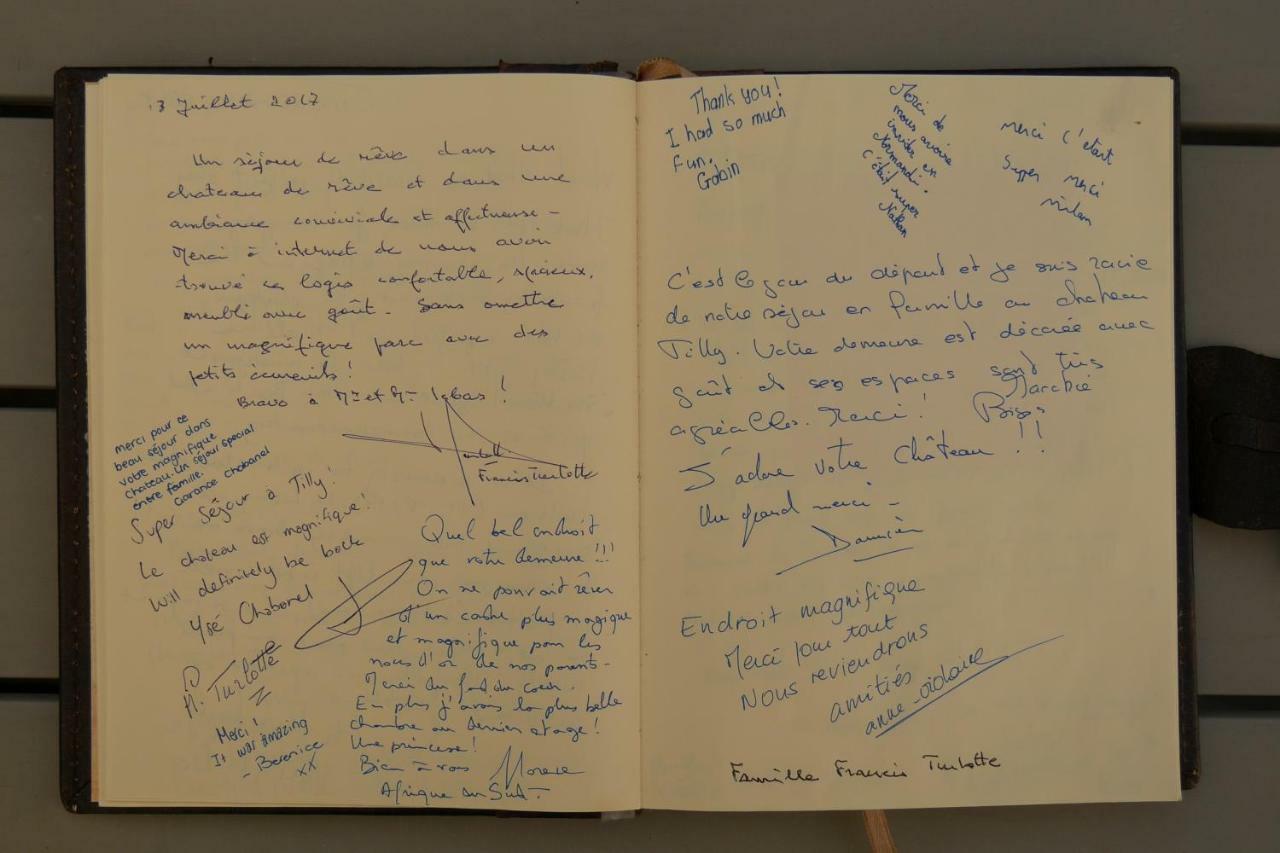 3 Juillet 2017
Un séjour de rêve dans un
chateau de rêve et dans une
ambiance conviviale et affectueuse -
Merci à internet de nous avoir
trouvé ce logis confortable, spacieux,
meublé avec goût - Sans omettre
un magnifique parc avec des
petits écureuils !
Bravo à Mme et Mr
Francis Turlotte
merci pour ce
beau séjour dans
votre magnifique
chateau. Un séjour special
entre famille.
Garance Chabanel
Super Séjour à Tilly !
Le chateau est magnifique !
Will definitely be back
Ysé Chabanel
A. Turlotte
Merci !
It was amazing
- Berenice
xx
Quel bel endroit
que votre demeure !!!
On ne pouvait rêver
d'un cadre plus magique
et magnifique pour les
noces d'or de nos parents -
Merci du fond du coeur.
En plus j'avais la plus belle
chambre au dernier etage !
Une princesse !
Bien à vous Florence
Afrique du Sud -
Thank you!
I had so much
fun.
Gabin
Merci de
nous avoire
inviter en
Normandi.
C'était super
Nathan
merci c'étart
Super merci
Milan
C'est le jour du départ et je suis ravie
de notre séjour en famille au chateau
Tilly. Votre demeure est décorée avec
goût et ses espaces sont très
agréables. Merci ! Bisous
J'adore votre Château !!
Un grand merci -
Damien
Endroit magnifique
Merci pour tout
Nous reviendrons
amitiés
anne-victoire
Famille Francis Turlotte